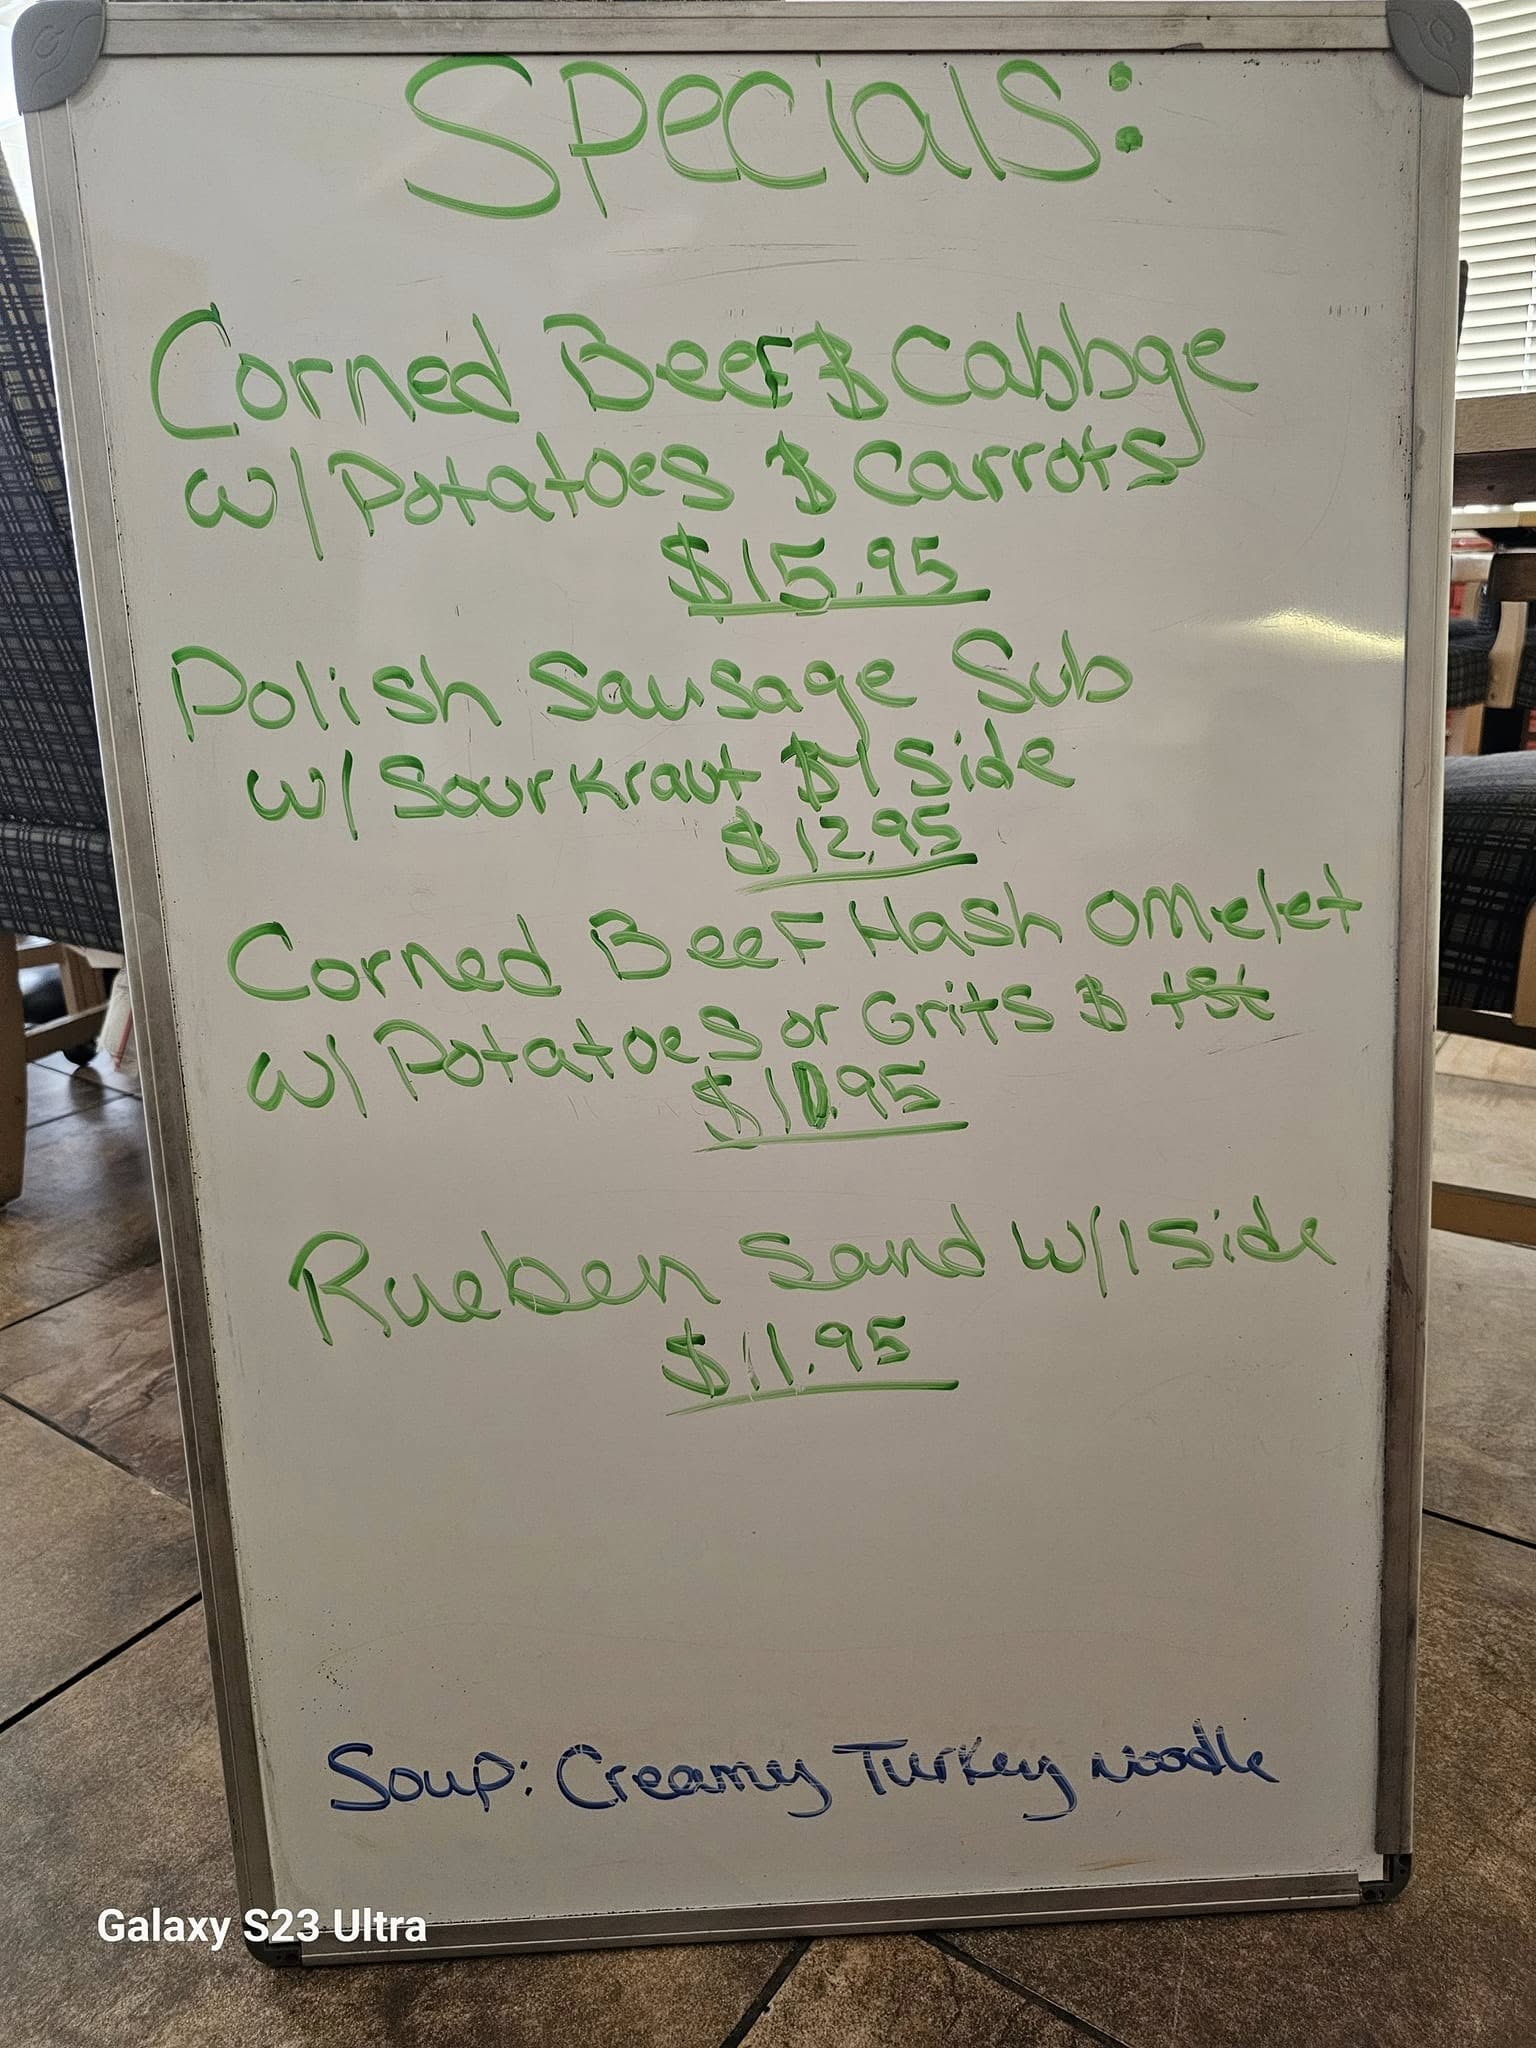 Specials:
Corned Beef & Cabbge
w/ Potatoes & Carrots
$15.95
Polish Sausage Sub
w/ Sourkraut & 1 Side
$12.95
Corned Beef Hash Omelet
w/ Potatoes or Grits & tst
$10.95
Rueben Sand w/ 1 Side
$11.95
Soup: Creamy Turkey Noodle
Galaxy S23 Ultra